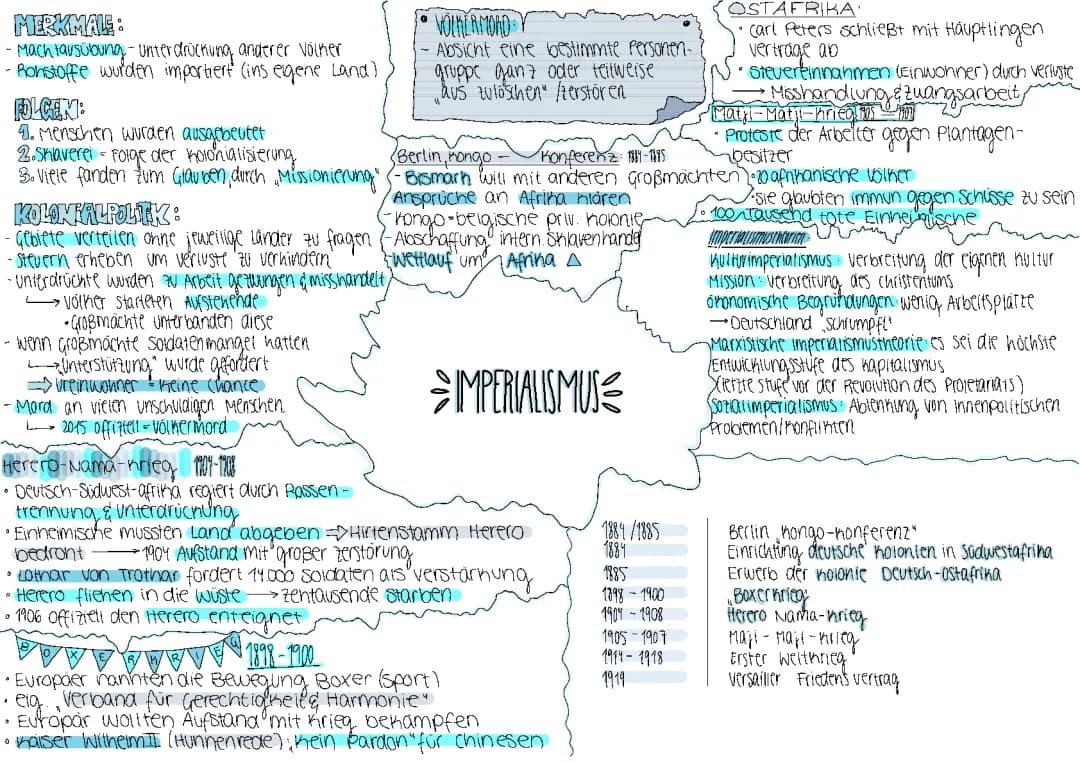 MERKMALE:
- Machtausübung - Unterdrückung anderer Völker
- Rohstoffe wurden importiert (ins eigene Land)
FOLGEN:
1. Menschen wurden ausgebeutet
2. Sklaverei = Folge der Kolonialisierung
3. Viele fanden zum Glauben durch „Missionierung"
KOLONIALPOLITIK:
- Gebiete verteilen ohne jeweilige Länder zu fragen
- Steuern erheben um Verluste zu verhindern
- Unterdrückte wurden zu Arbeit gezwungen & misshandelt
↳ Völker starteten Aufstehende
• Großmächte unterbanden diese
- wenn Großmächte Soldatenmangel hatten
↳ „Unterstützung" wurde gefordert
⇒ Ureinwohner = keine Chance
- Mord an vielen unschuldigen Menschen
↳ 2015 offiziell = Völkermord
Herero-Nama-Krieg 1904-1908
• Deutsch-Südwest-afrika regiert durch Rassen-
trennung & Unterdrückung
• Einheimische mussten Land abgeben ⇒ Hirtenstamm Herero
bedroht → 1904 Aufstand mit großer Zerstörung
• Lothar von Trothar fordert 14000 Soldaten als Verstärkung
• Herero fliehen in die Wüste → zehntausende starben
• 1906 offiziell den Herero enteignet
BOXERKRIEG 1898-1900
• Europäer nannten die Bewegung Boxer (Sport)
• eig. „Verband für Gerechtigkeit & Harmonie"
• Europär wollten Aufstand mit Krieg bekämpfen
• Kaiser Wilhelm II (Hunnenrede): „Kein Pardon" für Chinesen
• VÖLKERMORD:
- Absicht eine bestimmte Personen-
gruppe ganz oder teilweise
„aus zulöschen" / zerstören
Berlin „Kongo - Konferenz: 1884-1885
- Bismark will mit anderen Großmächten
Ansprüche an Afrika klären
- Kongo = belgische priv. Kolonie
- Abschaffung intern. Sklavenhandel
- Wettlauf um Afrika
IMPERIALISMUS
OSTAFRIKA:
• Carl Peters schließt mit Häuptlingen
verträge ab
• Steuereinnahmen (Einwohner) durch verluste
→ Misshandlung & Zwangsarbeit
Matji-Matji-Krieg 1905 - 1907
• Proteste der Arbeiter gegen Plantagen-
besitzer
• 20 afrikanische Völker
• sie glaubten immun gegen Schüsse zu sein
• 100 Tausend tote Einheimische
Imperialismustheorien
Kulturimperialismus: Verbreitung der eigenen Kultur
Mission: Verbreitung des Christentums
ökonomische Begründungen wenig Arbeitsplätze
→ Deutschland „schrumpft"
Marxistische Imperialismustheorie es sei die höchste
Entwicklungsstufe des Kapitalismus
(letzte Stufe vor der Revolution des Proletariats)
Sozialimperialismus: Ablenkung von innenpolitischen
Problemen/Konflikten
1884/1885 Berlin „Kongo-Konferenz"
1884 Einrichting deutsche Kolonien in Südwestafrika
1885 Erwerb der Kolonie Deutsch-Ostafrika
1898 - 1900 „Boxerkrieg"
1904 - 1908 Herero Nama-Krieg
1905 - 1907 Maji - Maji - Krieg
1914 - 1918 Erster Weltkrieg
1919 Versailler Friedensvertrag